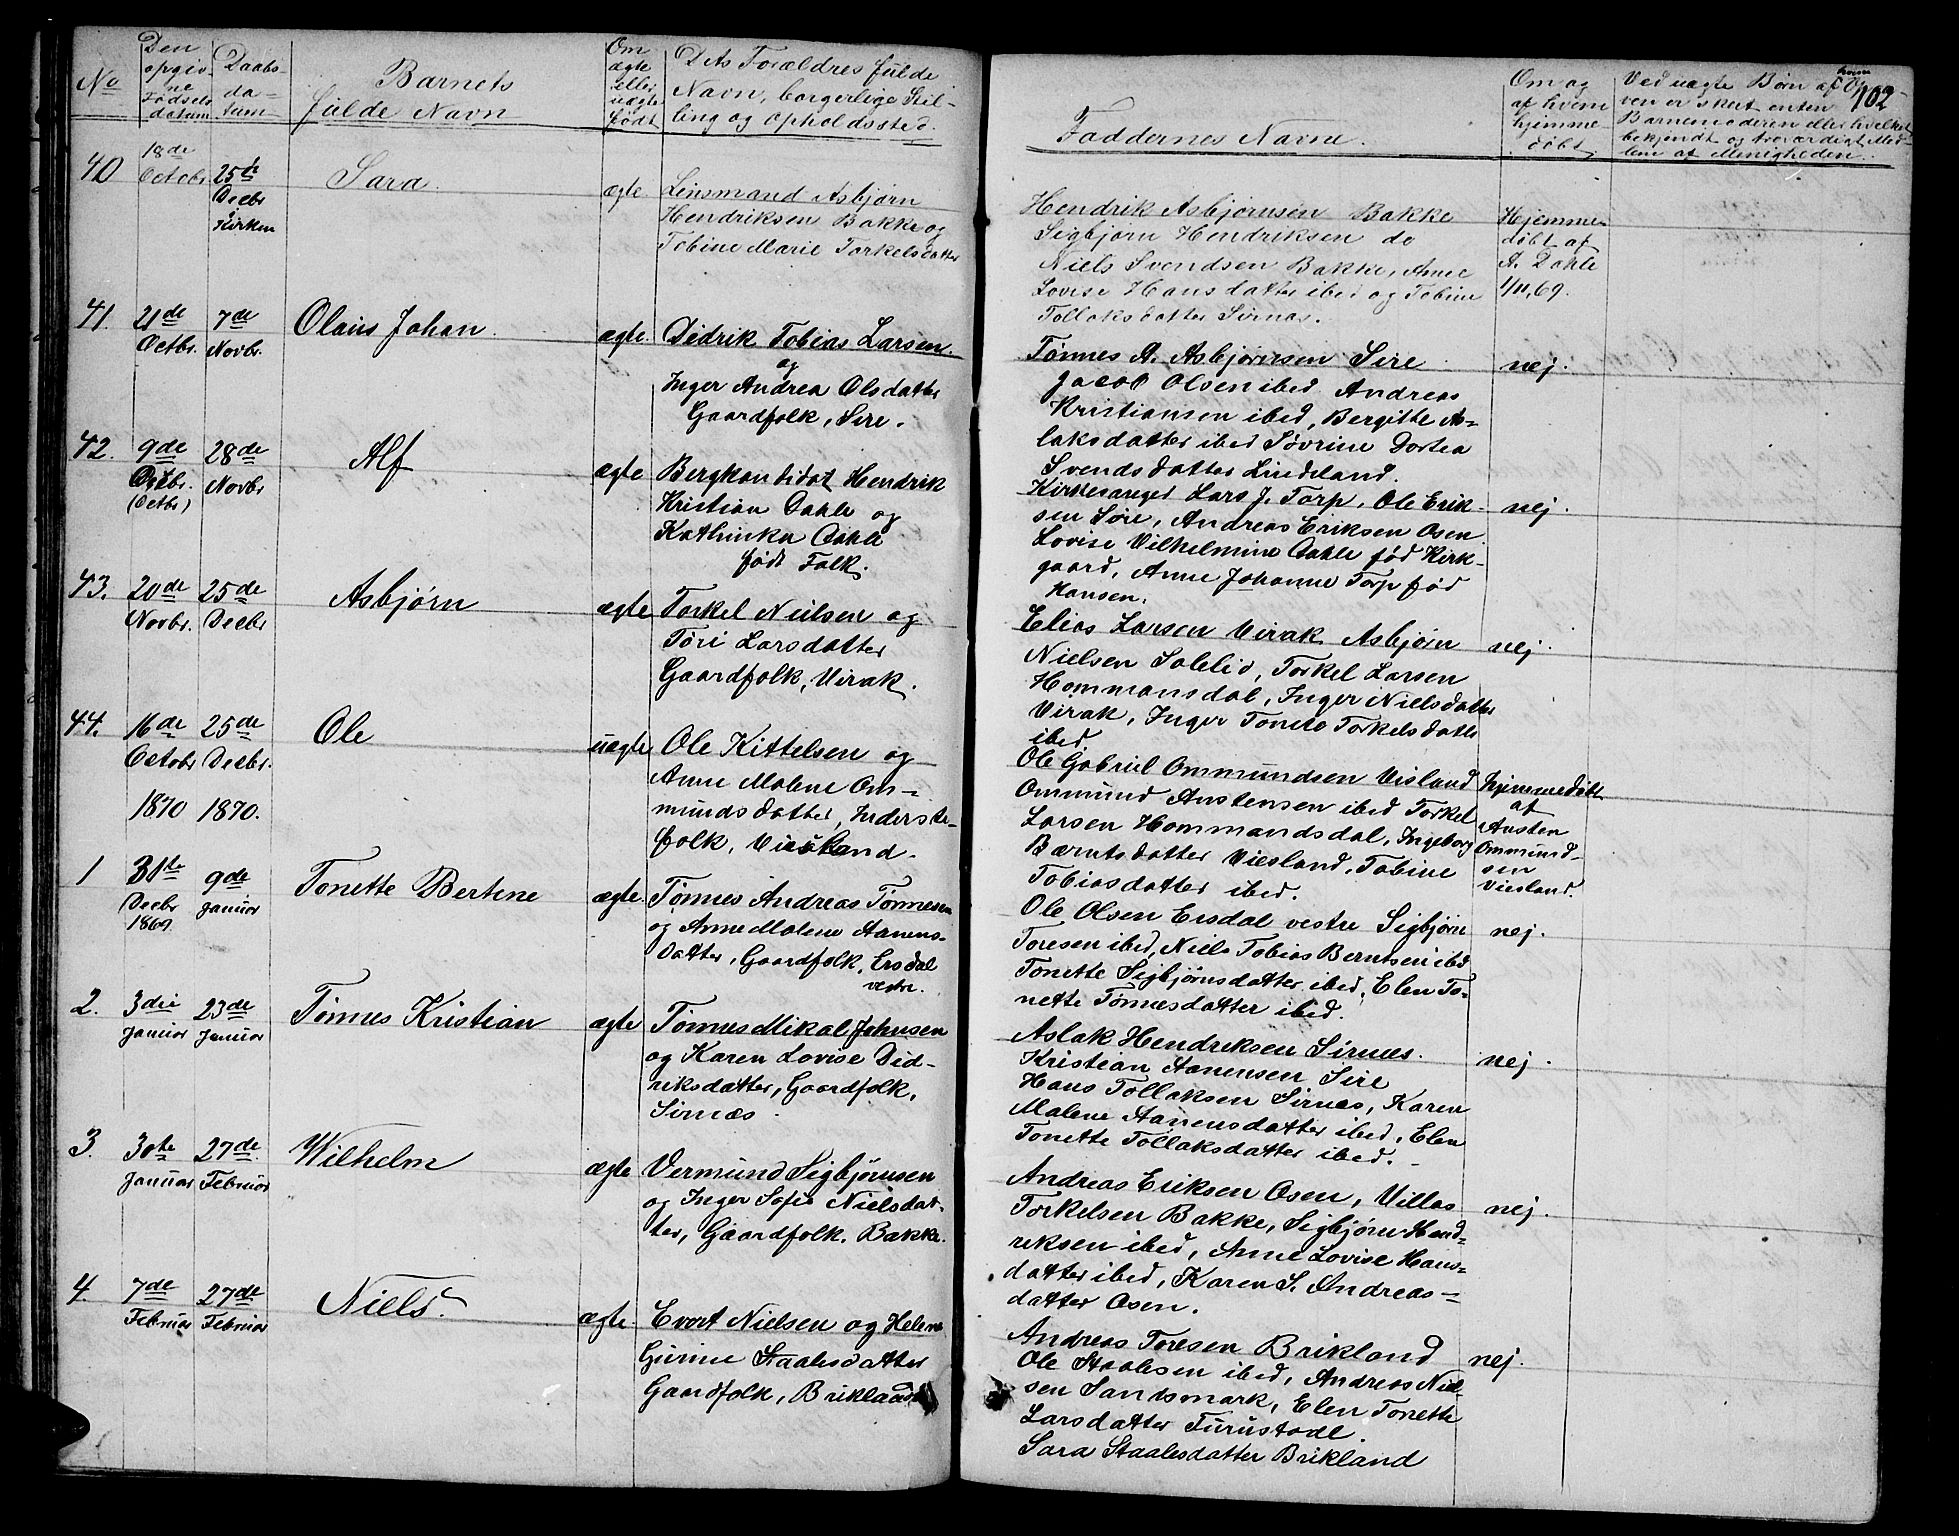 No
Den
opgiv-
ne
Fødsels
datum
Daabs-
da-
tum
Barnets
fulde Navn
Om
ægte
eller
uægte
født
Dets Forældres fulde
Navn, borgerlige Stil-
ling og Opholdssted.
Faddernes Navne.
Om og
af hvem
hjemme-
døbt
Ved uægte Børn af hvem
ven er skeet enten
Barnemoderen eller hvilket
bekjendt og troværdigt Med-
lem af Menigheden.
102
40
18de
Octobr
25de
Decbr
i Kirken
Sara.
ægte.
Lensmand Asbjørn
Hendriksen Bakke og
Tobine Marie Torkelsdatter
Hendrik Asbjørnsen Bakke
Sigbjørn Hendriksen do
Niels Svendsen Bakke, Anne
Lovise Hansdatter ibed og Tobine
Tollaksdatter Sirnæs.
Hjemme-
døbt af
A. Dahle
1/11, 69.
41.
21de
Octbr.
7de
Novbr.
Olaus Johan.
ægte.
Didrik Tobias Larsen.
og
Inger Andrea Olsdatter
Gaardfolk, Sire.
Tønnes A. Asbjørnsen Sire
Jacob Olsen ibed Andreas
Kristiansen ibed, Bergitte As-
laksdatter ibed Søvrine Dortea
Svendsdatter Lindeland.
nej.
42.
9de
Octbr.
(Octbr)
28de
Novbr
Alf
ægte
Bergkandidat Hendrik
Kristian Dahle og
Kathinka Dahle
født Falk.
Kirkesanger Lars J. Torp, Ole Erik-
sen Sire, Andreas Eriksen Osen
Lovise Vilhelmine Dahle fød Kirk-
gaard, Anne Johanne Torp fød
Hansen.
nej.
43.
20de
Novbr.
25de
Decbr
Asbjørn
ægte
Torkel Nielsen og
Tori Larsdatter
Gaardfolk, Virak.
Elias Larsen Virak Asbjørn
Nielsen Solelid, Torkel Larsen
Hommansdal, Inger Nielsdatter
Virak, Inger Tonete Torkelsdatte
ibed
nej.
44.
16de
Octobr
25de
Decbr.
Ole
uægte
Ole Kittelsen og
Anne Malene Om-
mundsdatter, Inderste-
folk, Viesland.
Ole Gabriel Ommundsen Visland
Ommund Austensen ibed Torkel
Larsen Hommandsdal, Ingeborg
Bærntsdatter Viesland, Tobine
Tobiasdatter ibed.
hjemmedøbt
af
Austen
Ommund-
sen
Viesland.
1870 1870.
1
31te
Decbr
1869
9de
Januar
Tonette Bertine
ægte.
Tønnes Andreas Tønnesen
og Anne Malene Aanens-
datter, Gaardfolk, Ersdal
vestre.
Ole Olsen Ersdal vestre Sigbjørn
Toresen ibed, Niels Tobias Berntsen ibd
Tonette Sigbjørnsdatter ibed, Elen To-
nette Tønnesdatter ibed.
nej.
2.
3die
Januar
23de
Januar
Tønnes Kristian
ægte
Tønnes Mikal Johnsen
og Karen Lovise Did-
riksdatter, Gaardfolk,
Sirnæs.
Aslak Hendriksen Sirnæs.
Kristian Aanensen Sire
Hans Tollaksen Sirnæs, Karen
Malene Aanensdatter ibed, Elen
Tonette Tollaksdatter ibed.
nej.
3.
30te
Januar
27de
Februar
Wilhelm
ægte
Vermund Sigbjørnsen
og Inger Sofie Nielsdat-
ter, Gaardfolk, Bakke.
Andreas Eriksen Osen, Villas
Torkelsen Bakke, Sigbjørn Hend-
reksen ibed, Anne Lovise Hans-
datter ibed, Karen S. Andreas-
datter Osen.
nej.
4.
7de
Februar
27de
Februar
Niels.
ægte.
Evert Nielsen og Helene
Gurine Staalesdatter
Gaardfolk, Brikland
Andreas Toresen Brikland
Ole Staalesen ibed, Andreas Niel-
sen Sandsmark, Elen Tonette
Larsdatter Furustadl
Sara Staalesdatter Brikland
nej.